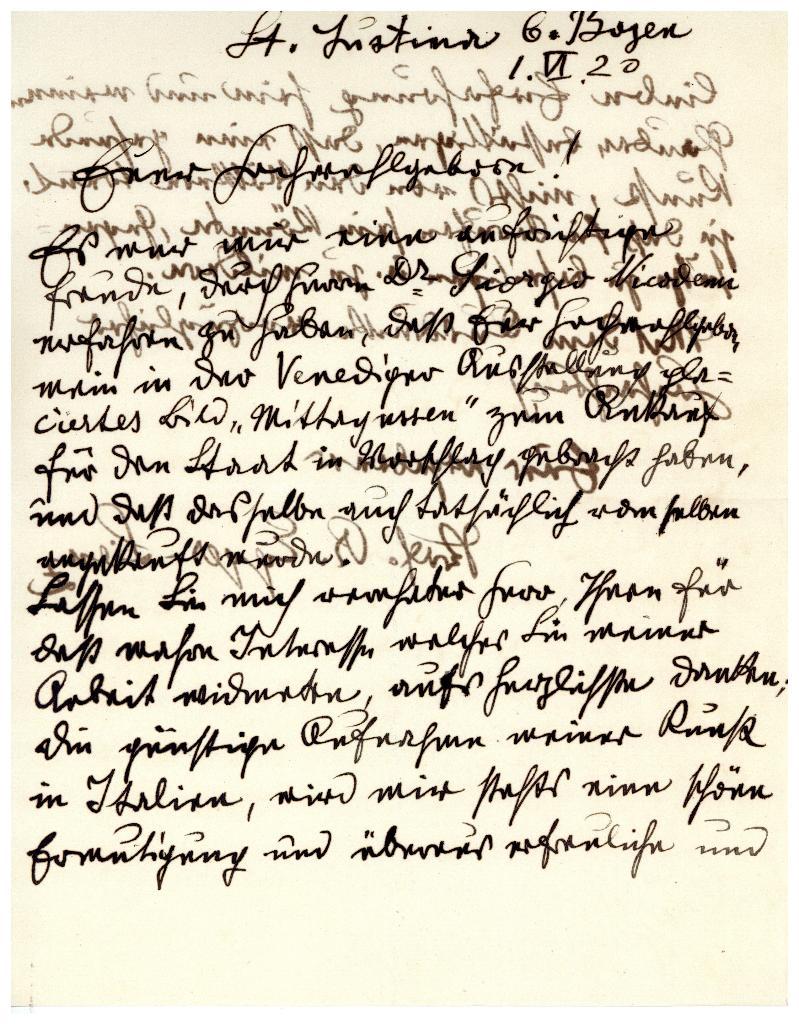 St. Justina b. Bozen
1. VI. 20
Euer Hochwohlgeboren!
Es war mir eine aufrichtige
Freude, durch Herrn Dr Giorgio Nicodemi
erfahren zu haben, daß Euer Hochwohlgebor.
mein in der Venediger Ausstellung pla=
ciertes Bild „Mittagessen" zum Ankauf
für den Staat in Vorschlag gebracht haben,
und daß dasselbe auch tatsächlich von selben
angekauft wurde.
Lassen Sie mich verehrter Herr, Ihnen für
daß wahre Interesse welches Sie meiner
Arbeit widmeten, aufs herzlichste danken;
die günstige Aufnahme meiner Kunst
in Italien, wird mir stehts eine schöne
Ermutigung und überaus erfreuliche und